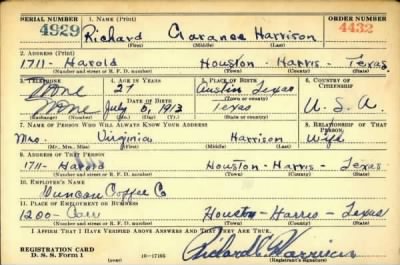 SERIAL NUMBER 1. NAME (Print) ORDER NUMBER
4929 Richard Clarance Harrison 4432
(First) (Middle) (Last)
2. ADDRESS (Print)
1711- Harold Houston - Harris - Texas
(Number and street or R. F. D. number) (Town) (County) (State)
3. TELEPHONE 4. AGE IN YEARS 5. PLACE OF BIRTH 6. COUNTRY OF CITIZENSHIP
None 27 Austin Texas
DATE OF BIRTH (Town or county)
None July 6, 1913 Texas U. S. A.
(Exchange) (Number) (Mo.) (Day) (Yr.) (State or country)
7. NAME OF PERSON WHO WILL ALWAYS KNOW YOUR ADDRESS 8. RELATIONSHIP OF THAT PERSON
Mrs. Virginia Harrison Wife
(Mr., Mrs., Miss) (First) (Middle) (Last)
9. ADDRESS OF THAT PERSON
1711- Harold Houston - Harris - Texas
(Number and street or R. F. D. number) (Town) (County) (State)
10. EMPLOYER'S NAME
Duncan Coffee Co
11. PLACE OF EMPLOYMENT OR BUSINESS
1200- Houston - Harris - Texas
(Number and street or R. F. D. number) (Town) (County) (State)
I AFFIRM THAT I HAVE VERIFIED ABOVE ANSWERS AND THAT THEY ARE TRUE.
REGISTRATION CARD
D. S. S. Form 1 16-17105 Richard C Harrison
(Registrant's signature)